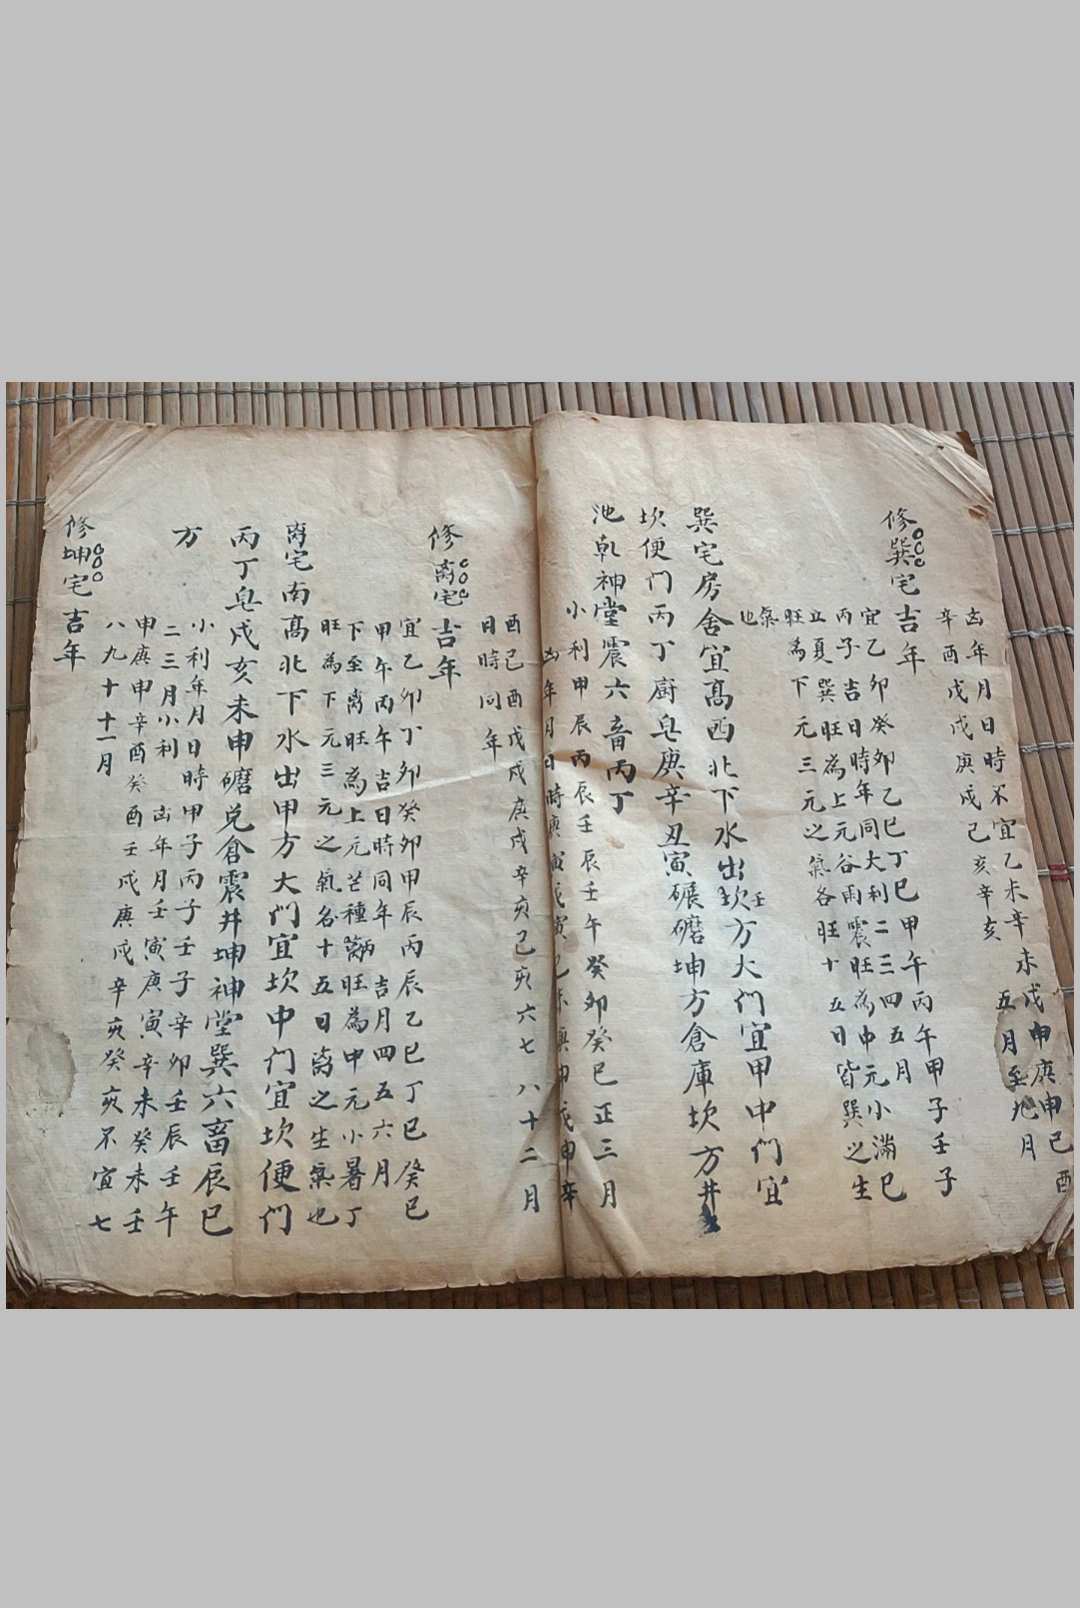 凶年月日時不宜乙未辛未戊申庚申己酉
辛酉戊戌庚戌己亥辛亥 五月至九月
修巽宅吉年
宜乙卯癸卯乙巳丁巳甲午丙午甲子壬子
丙子吉日時年同大利二三四五月
立夏巽旺為上元谷雨震旺為中元小滿巳
旺為下元三元之氣各旺十五日皆巽之生
氣也
巽宅房舍宜高西北下水出坎壬方大门宜甲中门宜
坎便门丙丁厨皂庚辛丑寅碾磨坤方倉庫坎方井
池乾神堂震六畜丙丁
小利甲辰丙辰壬辰壬午癸卯癸巳正三月
凶年月日時庚寅戊寅己未庚申戊申辛
酉己酉戊戌庚戌辛亥己亥六七八十二月
日時同年
修离宅吉年
宜乙卯丁卯癸卯甲辰丙辰乙巳丁巳癸巳
甲午丙午吉日時同年 吉月四五六月
下至离旺為上元芒種丙旺為中元小暑丁
旺為下元三元之氣各十五日离之生氣也
离宅南高北下水出甲方大门宜坎中门宜坎便门
丙丁皂戌亥未申磨兑倉震井坤神堂巽六畜辰巳
方
小利年月日時甲子丙子壬子辛卯壬辰壬午
二三月小利 凶年月壬寅庚寅辛未癸未壬
申庚申辛酉癸酉壬戌庚戌辛亥癸亥不宜七
八九十十一月
修坤宅吉年